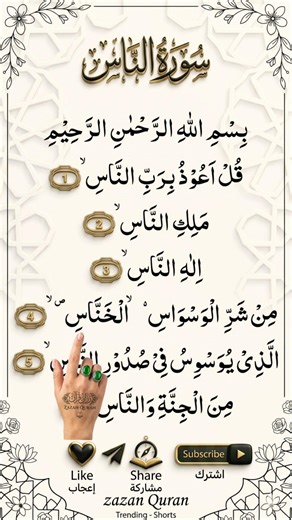 سُورَةُ النَّاسِ
بِسْمِ اللهِ الرَّحْمٰنِ الرَّحِيْمِ
قُلْ اَعُوْذُ بِرَبِّ النَّاسِ ۙ 1
مَلِكِ النَّاسِ ۙ 2
اِلٰهِ النَّاسِ ۙ 3
مِنْ شَرِّ الْوَسْوَاسِ ۙ الْخَنَّاسِ ۪ ۙ 4
الَّذِيْ يُوَسْوِسُ فِيْ صُدُوْرِ النَّاسِ ۙ 5
مِنَ الْجِنَّةِ وَالنَّاسِ
ZAZAN QURAN
Like Share Subscribe
إعجاب مشاركة اشترك
zazan Quran
Trending - Shorts